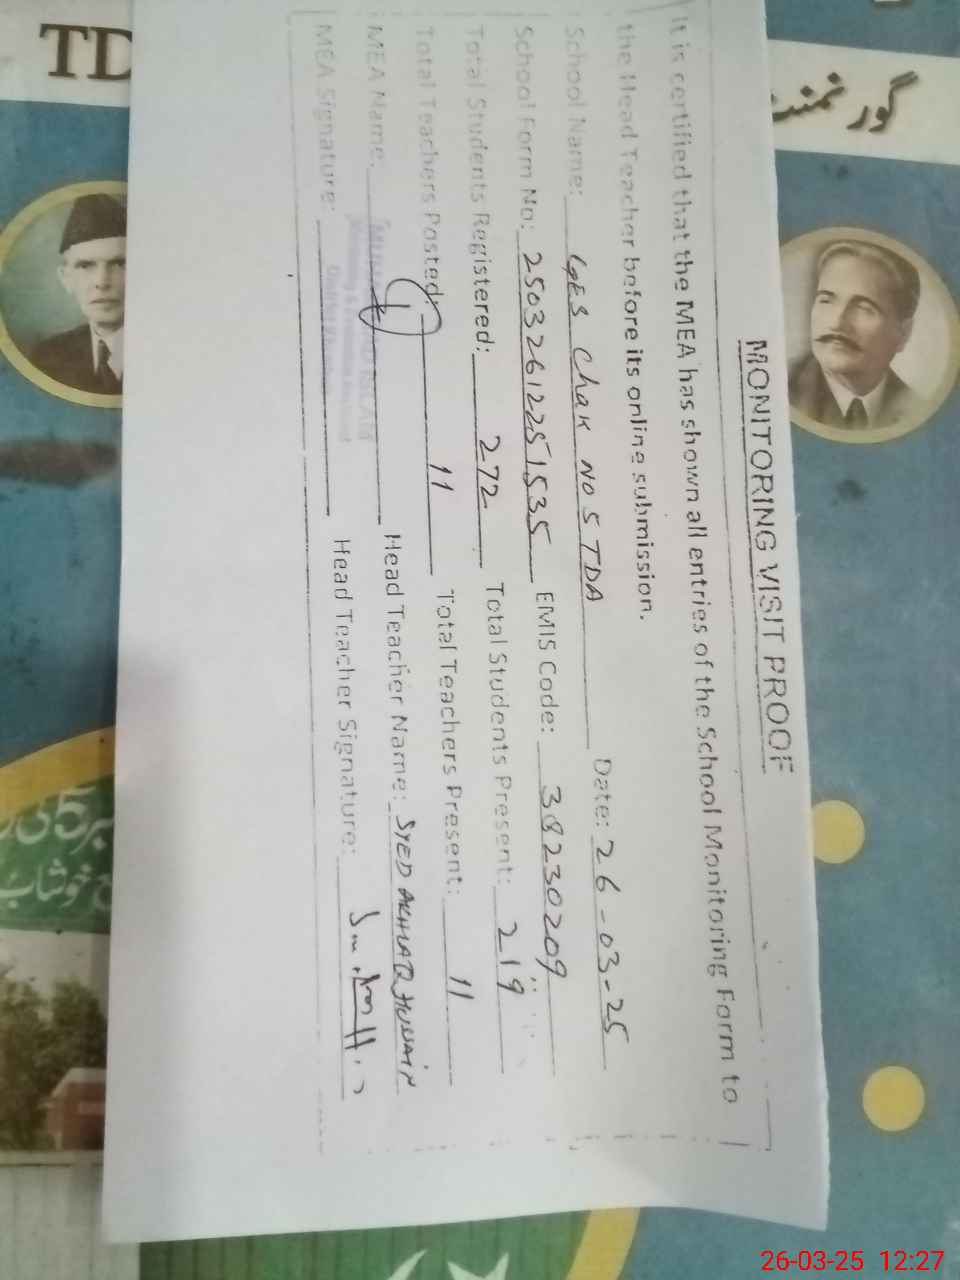 MONITORING VISIT PROOF
It is certified that the MEA has shown all entries of the School Monitoring Form to
the Head Teacher before its online submission.
School Name: GES Chak NO 5 TDA Date: 26-03-25
School Form No: 25032612251535 EMIS Code: 38230209
Total Students Registered: 272 Total Students Present: 219
Total Teachers Posted: 11 Total Teachers Present: 11
MEA Name: Head Teacher Name: SYED AKHLAQ HUSSAIN
MEA Signature: Head Teacher Signature:
TD
گورنمنٹ
26-03-25 12:27